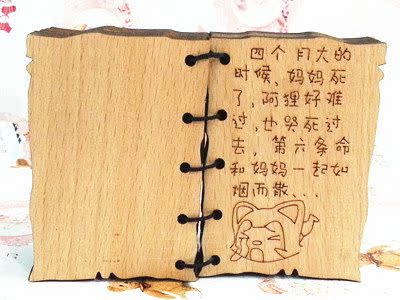 四个月大的
时候,妈妈死
了,阿狸好难
过,也哭死过
去,第六条命
和妈妈一起如
烟而散...